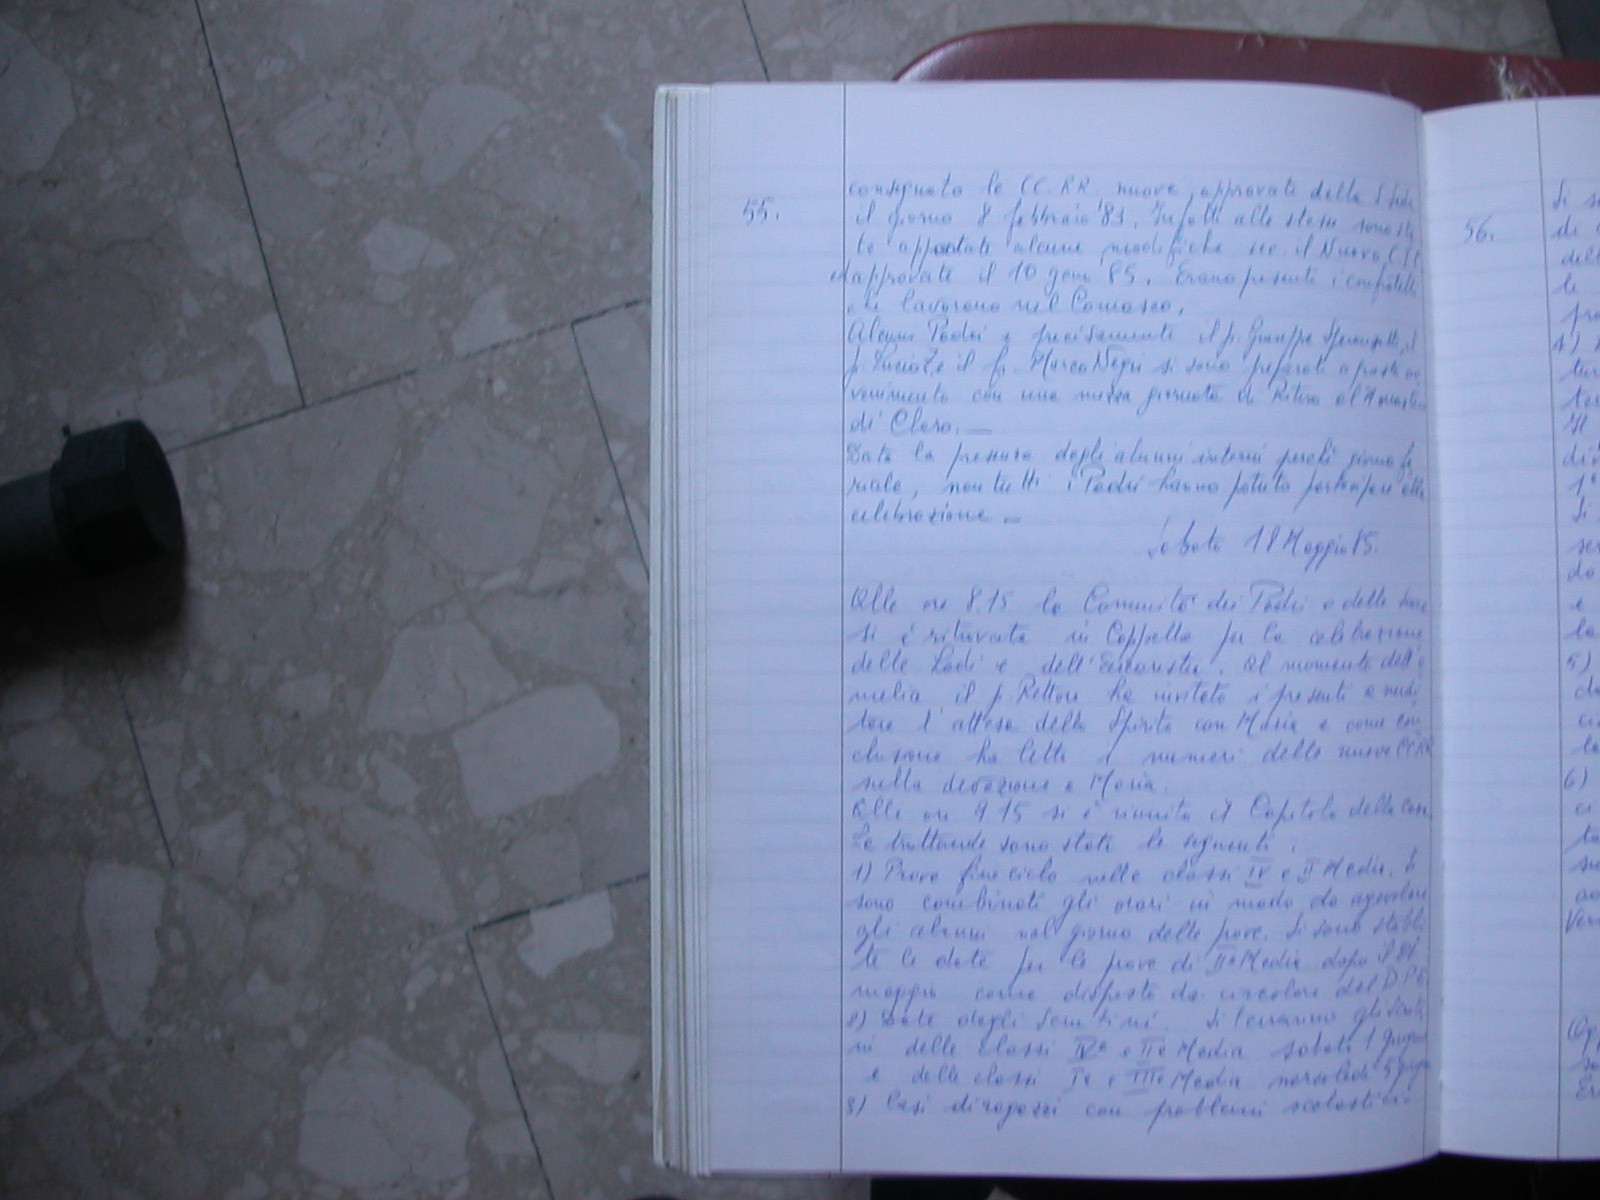 55.
consegnato le CC.RR. nuove, approvate dalla S. Sede
il giorno 8 febbraio '83. Infatti alle stesse sono sta
te apportate alcune modifiche sec. il Nuovo C.I.C.
ed approvate il 10 genn 85. Erano presenti i confratelli
che lavorano nel Comasco.
Alcuni Padri e precisamente il p. Giuseppe Speranzetti, il
p. Lucio Z. e il fr. Marco Negri si sono preparati a questo av
venimento con una mezza giornata di Ritiro al Monastero
di Claro.
Data la presenza degli alunni interni perché giorno fe
riale, non tutti i Padri hanno potuto partecipare alla
celebrazione.
Sabato 18 Maggio 85.
Alle ore 8.15 la Comunità dei Padri e delle Suore
si è ritrovata in Cappella per la celebrazione
delle Lodi e dell'Eucarestia. Al momento dell'o
melia il p. Rettore ha invitato i presenti a medi
tare l'attesa dello Spirito con Maria e come con
clusione ha letto i numeri delle nuove CCRR
sulla devozione a Maria.
Alle ore 9.15 si è riunito il Capitolo della Casa.
Le trattande sono state le seguenti:
1) Prove fine ciclo nelle classi IV e II Media. Si
sono combinati gli orari in modo da agevolare
gli alunni nel giorno delle prove. Si sono stabili
te le date per le prove di IIª Media dopo il 21
maggio come disposto da circolare del DPE
2) Date degli Scrutini. Si terranno gli Scruti
ni delle classi IVª e IIª Media sabato 1 giugno
e delle classi Iª e IIIª Media mercoledì 5 giugno
3) Casi di ragazzi con problemi scolastici.
56.
Si
di
dell
le
4)
5)
6)